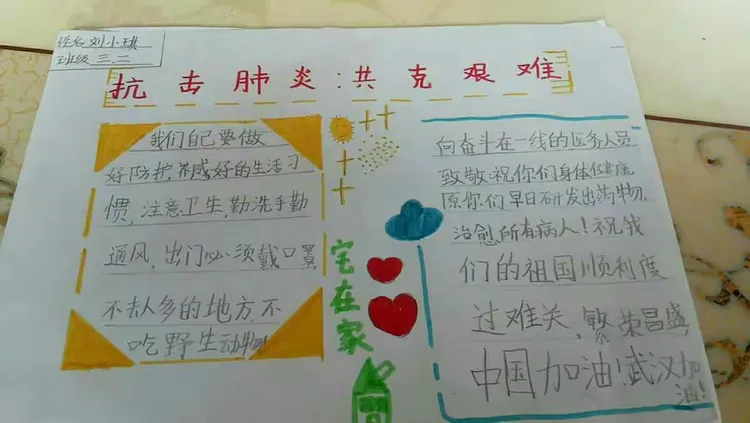 姓名刘小琪
班级三.二
抗击肺炎:共克艰难
我们自己要做
好防护,养成好的生活习
惯,注意卫生,勤洗手勤
通风,出门必须戴口罩,
不去人多的地方不
吃野生动物!
宅在家
向奋斗在一线的医务人员
致敬:祝你们身体健康,
愿你们早日研发出药物,
治愈所有病人!祝我
们的祖国顺利度
过难关,繁荣昌盛,
中国加油!武汉加
油!